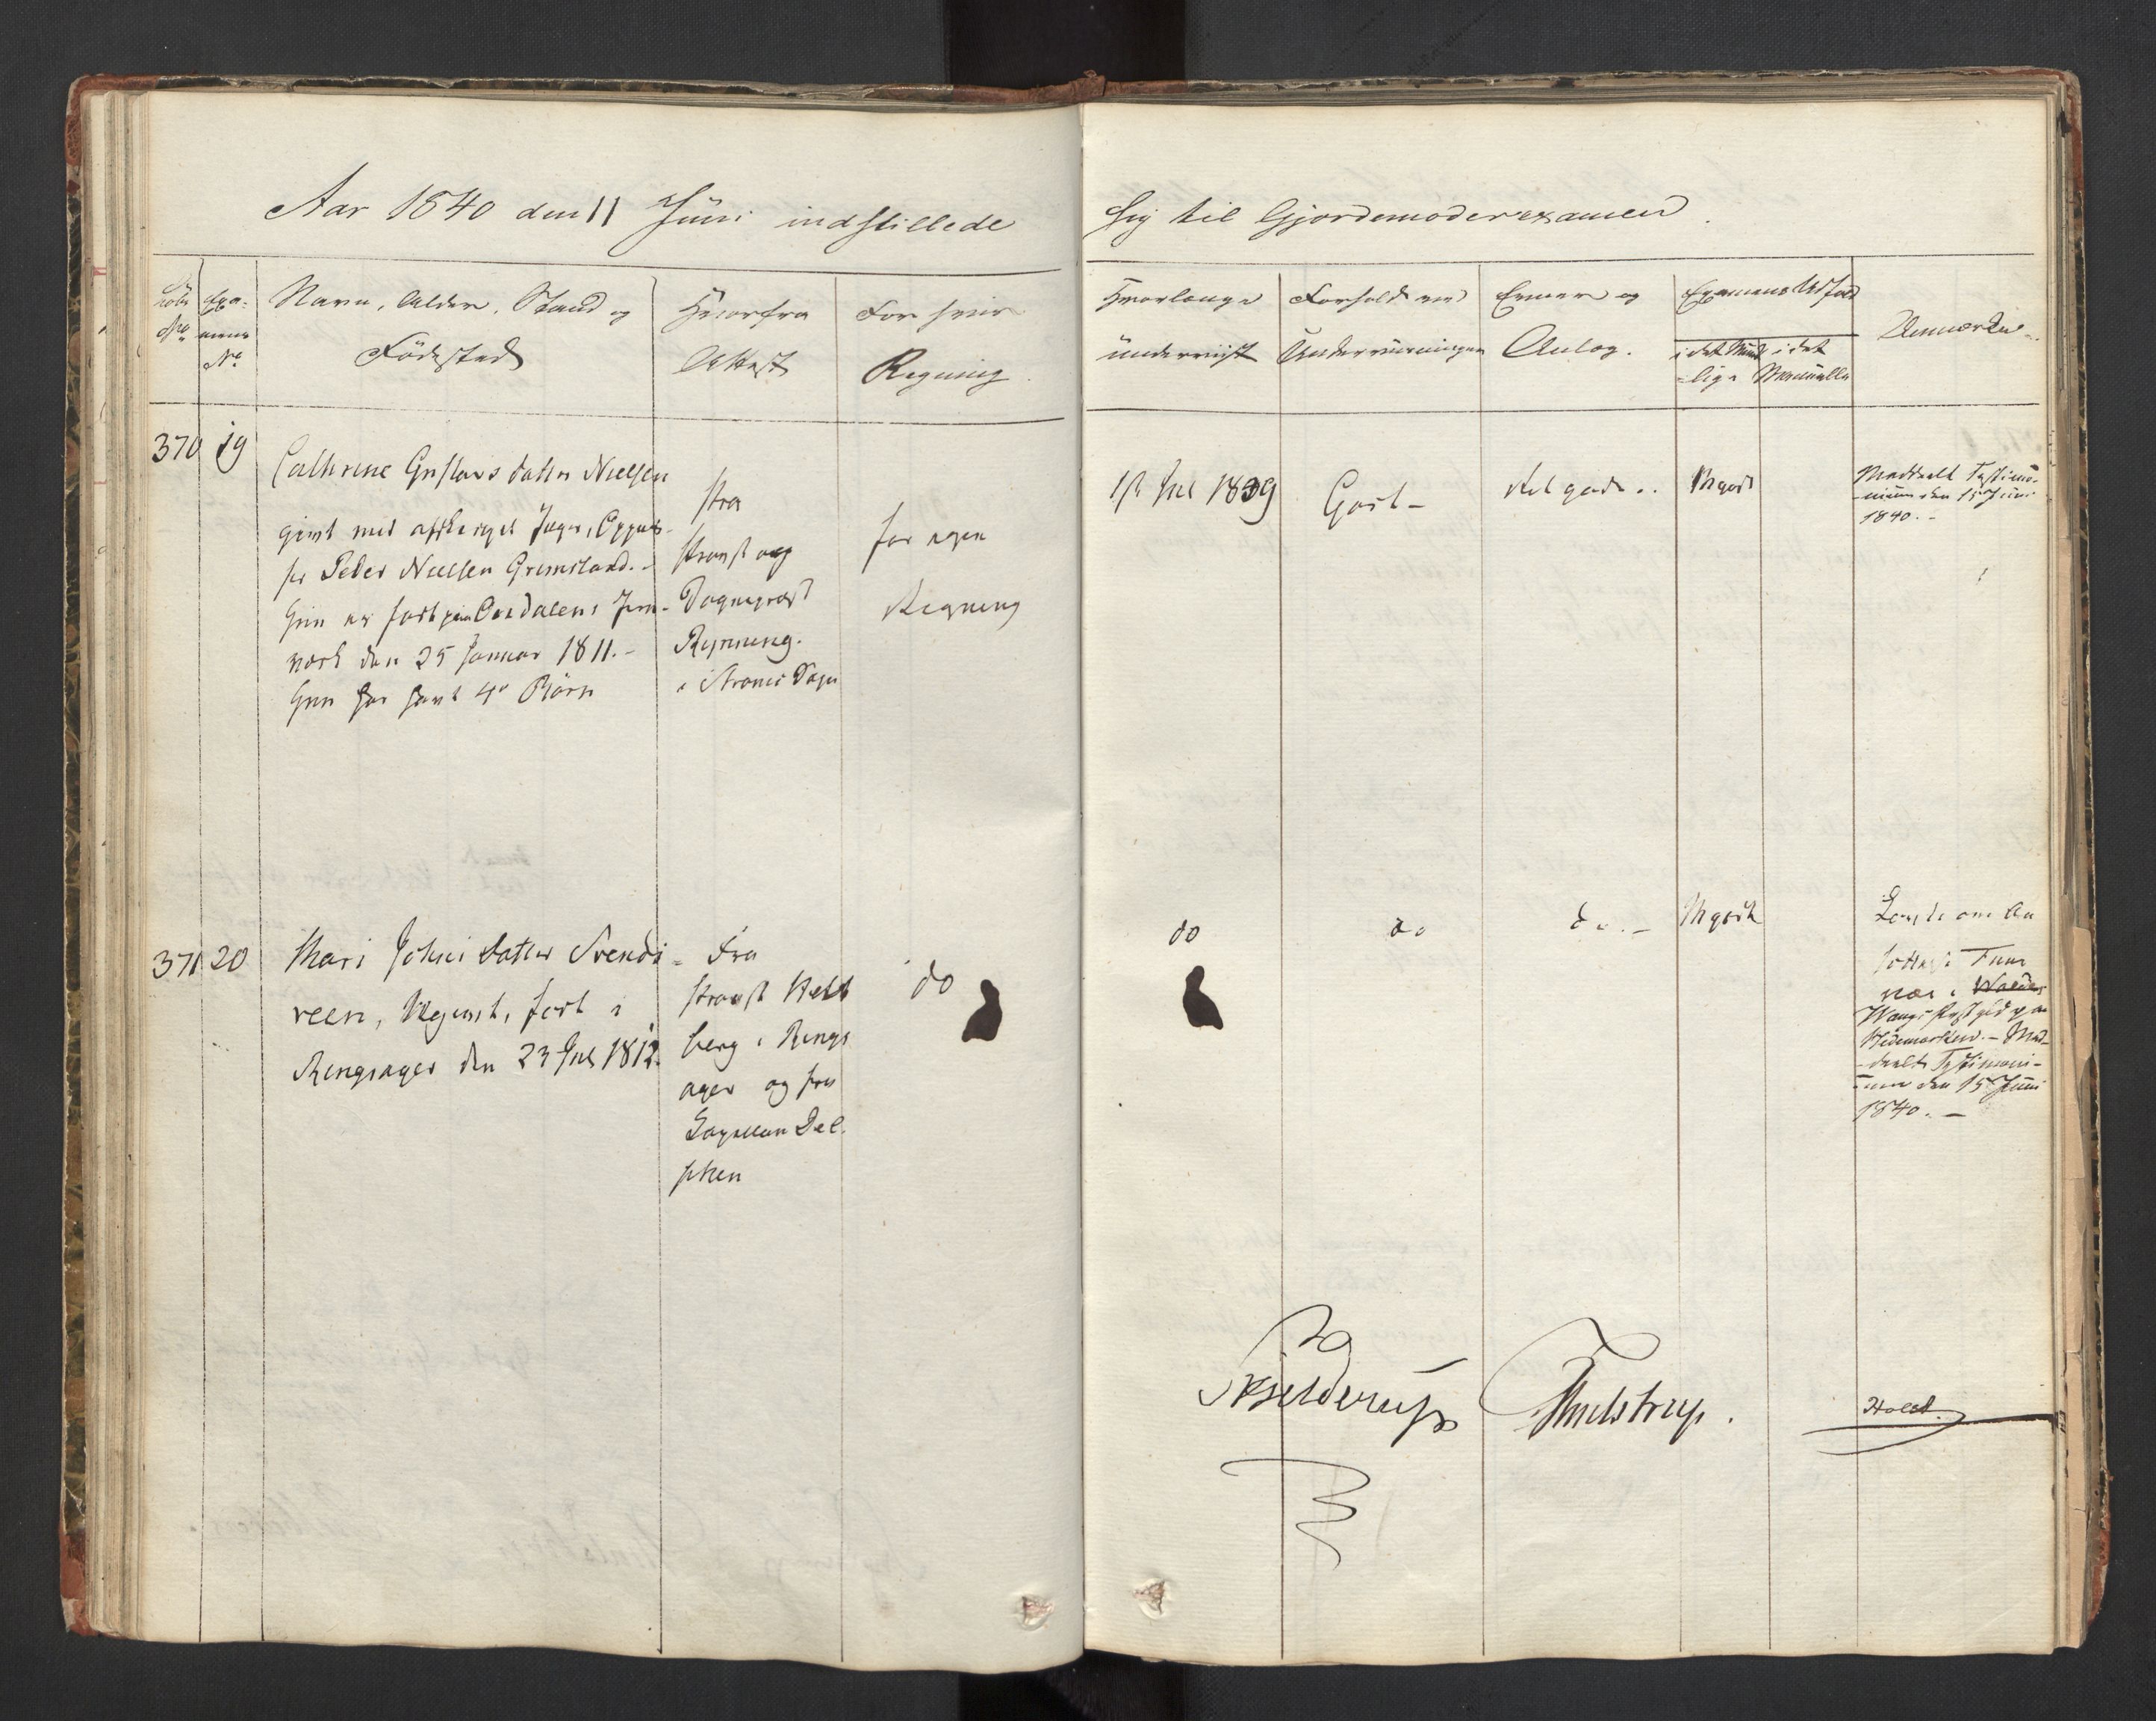 Aar 1840 den 11 Juni indstillede
sig til Gjordemoderexamen.
Løbe No
Exa-
mens
No
Navn, Alder, Stand og
Fødested
Hvorfra
Attest
For hvis
Regning.
Hvorlænge
underviist
Forhold ved
Underviisningen
Evner og
Anlæg.
Examens Udfald
i det Mündt-
lige
i det
Manuelle
Anmærkn.
370 19
Cathrine Gustavs datter Nielsen
givt med afskediget Jæger,
Peder Nielsen Grimsland.
Hun er født paa Jern-
værk den 25 Januar 1811.-
Hun har havt 4 Børn
fra
Provst og
Sognepræst
Rynning.
i Sogn
for egen
Regning
1st Jul 1839
Godt -
Ret gode..
Mgodt
Meddeelt Testimo-
nium den 15 Juni
1840.-
371 20
Mari Johns datter Svends-
reen, Ugivt, født i
Ringsager den 23 Jul 1812.
Fra
Provst
berg i Rings
ager og fra
Capellan Del
phen
do
do
do
do
Mgodt
om An
sættelse
nær i
Wangs Præstegjeld paa
Hedemarken. - Med-
deelt Testimoni-
um den 15 Juni
1840. -
Skjelderup
Thulstrup.
Holst.